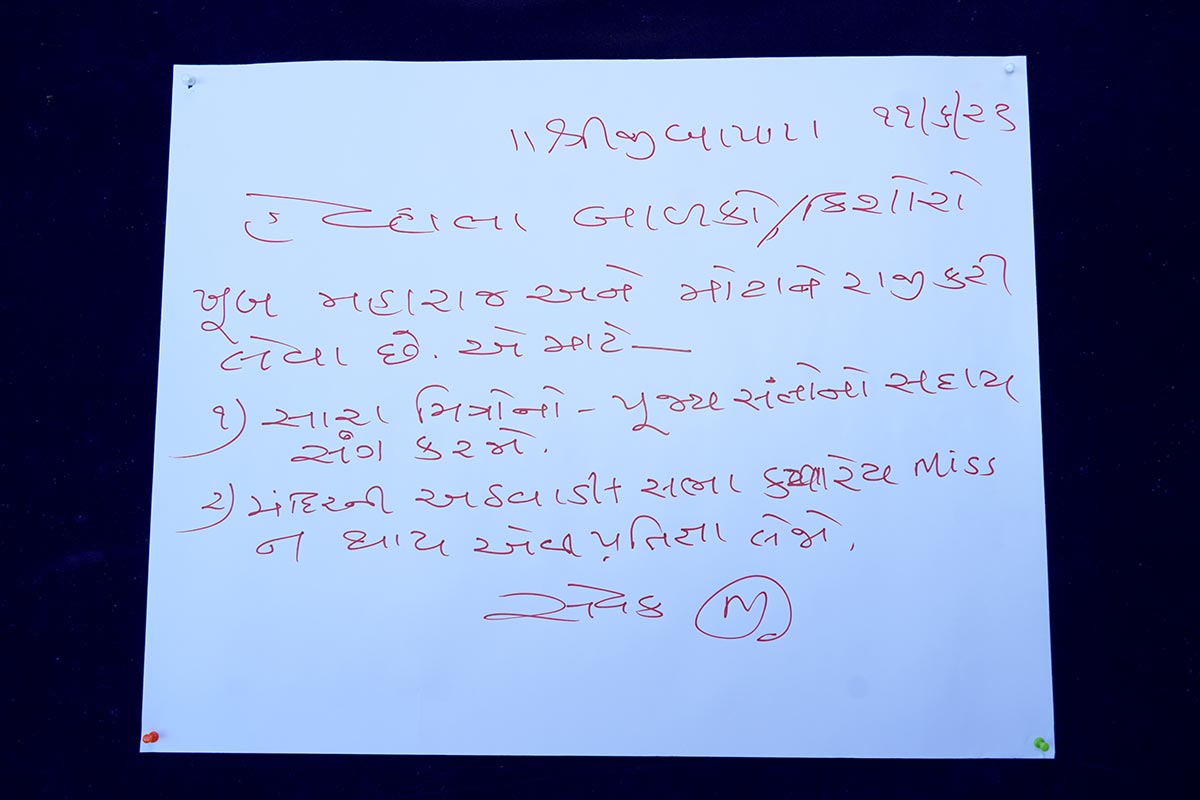 ૧૧/૬/૨૩
॥શ્રીજીબાપા॥
વ્હાલા બાળકો/કિશોરો
ખૂબ મહારાજ અને મોટાને રાજી કરી
લેવા છે. એ માટે —
૧) સારા મિત્રોનો - પૂજ્ય સંતોનો સદાય
સંગ કરજો.
૨) મંદિરની અઠવાડી+ સભા ક્યારેય Miss
ન થાય એવી પ્રતિજ્ઞા લેજો.
સેવક M.